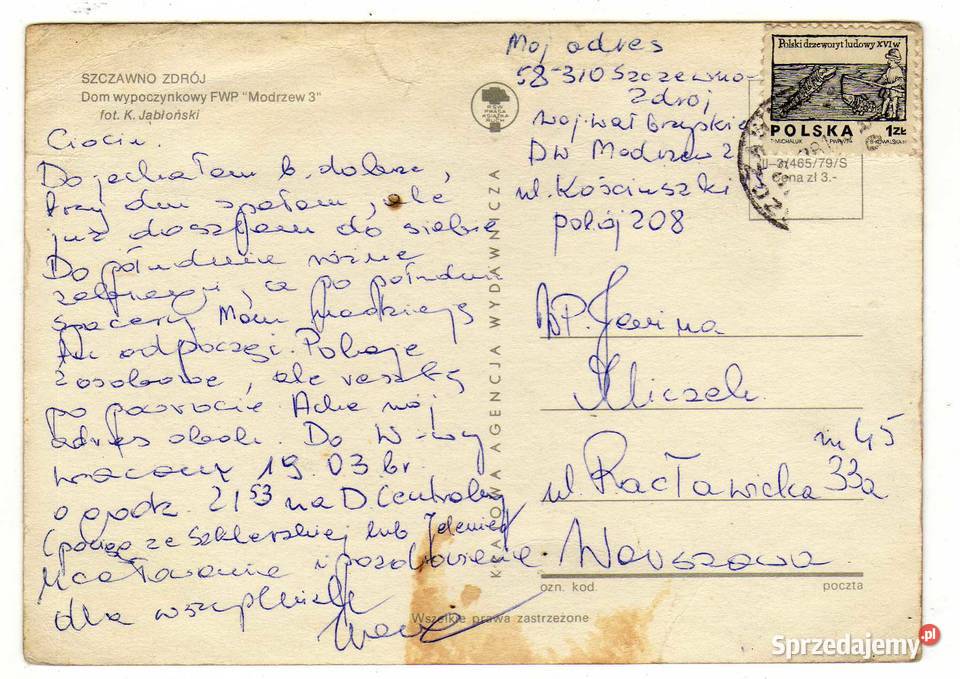 SZCZAWNO ZDRÓJ
Dom wypoczynkowy FWP "Modrzew 3"
fot. K. Jabłoński
Ciociu.
Dojechałam b. dobrze,
trzy dni spałam, ale
już doszłam do siebie
Do południa różne
zabiegi, a po południu
spacery. Mam nadzieję
odpocząć. Pokoje
2 osobowe, ale resztę
po powrocie. Acha mój
adres obok. Do W-wy
wracamy 19 03 br.
o godz. 21 53 na D. Centralny
(pociąg ze Szklarskiej lub Jeleniej
Ucałowania i pozdrowienia
dla wszystkich
Mój adres
58-310 Szczawno-
Zdrój
woj. wałbrzyskie
DW Modrzew 2
ul. Kościuszki
pokój 208
KRAJOWA AGENCJA WYDAWNICZA
RSW
PRASA
KSIĄŻKA
RUCH
Polski drzeworyt ludowy XVI w
POLSKA 1ZŁ
T·MICHALUK
II-3/465/79/S
Cena zł 3.-
WP. Janina
Miczek
ul. Racławicka 33a
m 45
Warszawa
ozn. kod. poczta
Wszelkie prawa zastrzeżone
Sprzedajemy.pl